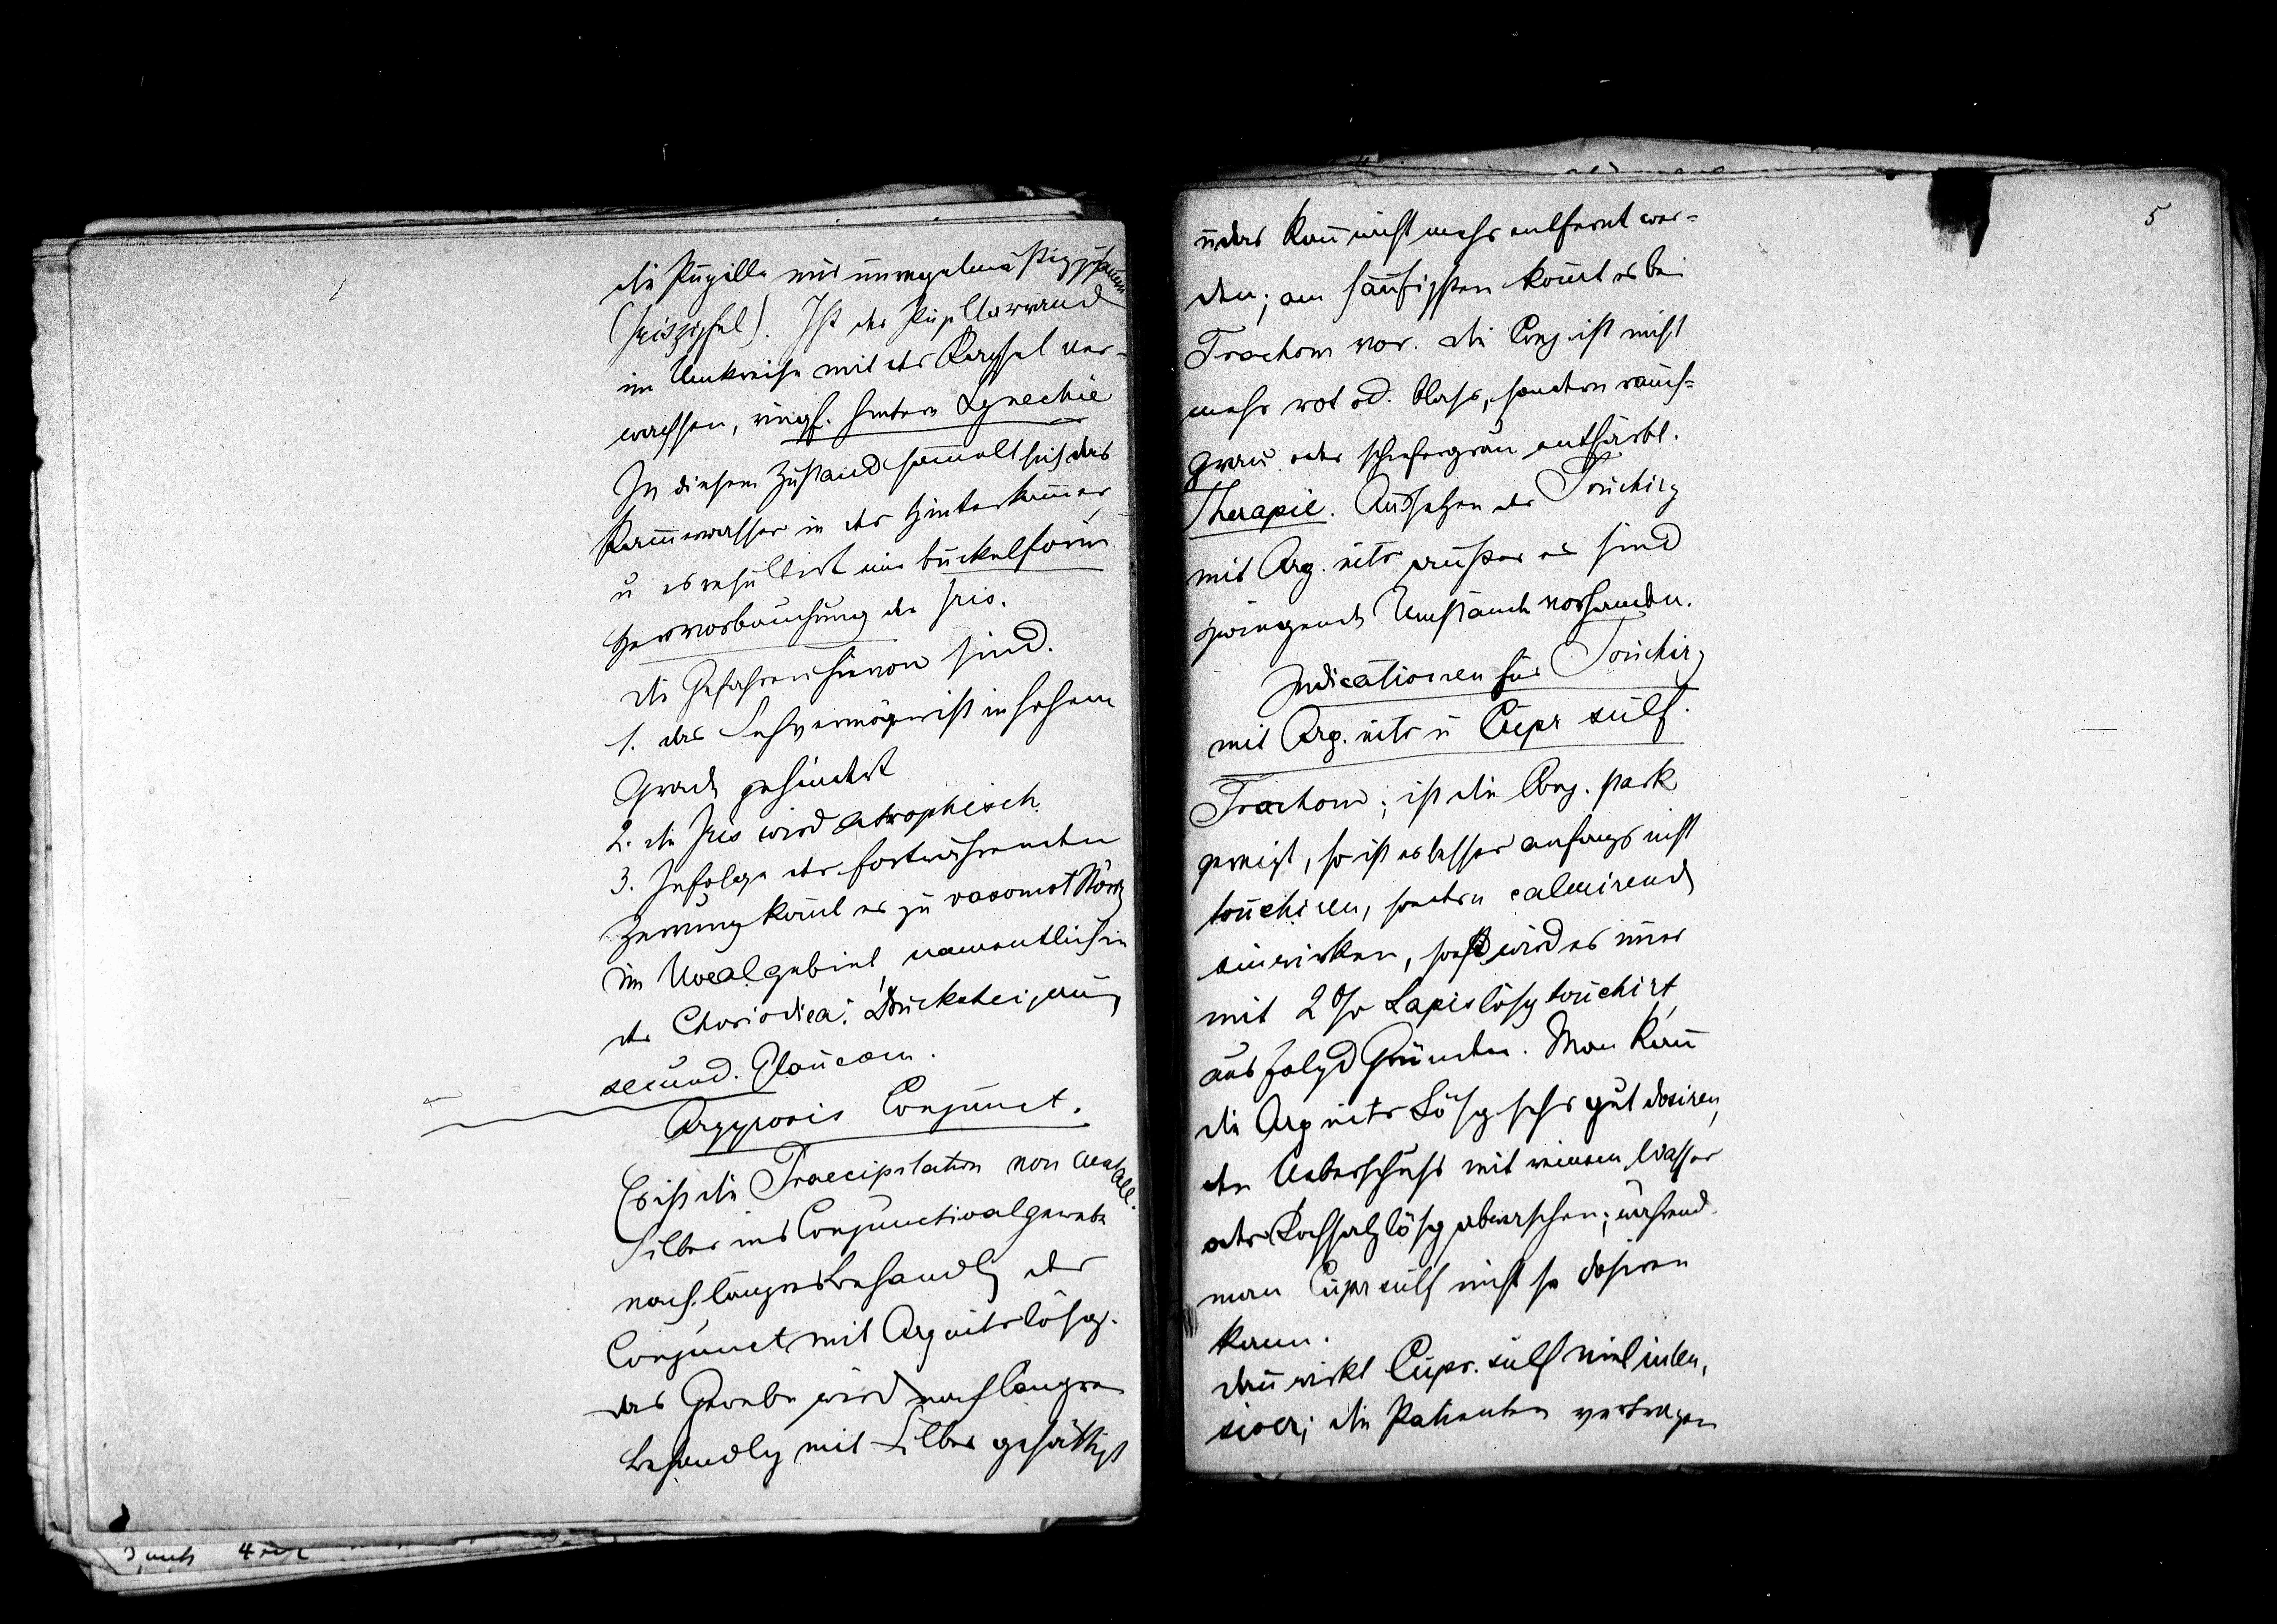 die Pupille nur unregelmäßig zusamm
(Iriszipfel). Ist der Pupillarrand
im Umkreise mit der Kapsel ver-
wachsen, ringf. hintere Synechie
In diesem Zustand sam̅elt sich das
Kam̅erwasser in der Hinterkam̅er
u es resultirt eine buckelförm
Hervorbauchung der Iris.
Die Gefahren hievon sind.
1. das Sehvermögen ist in hohem
Grade gehindert
2. die Iris wird atrophisch
3. Infolge der fortwährenden
Zerrung kom̅t es zu vasomot Störg
im Uvealgebiet, namentlich in
der Chorioidea: Drucksteigerung
secund. Glaucom.
Argyrosis Conjunct.
Es ist die Praecipitation von metall.
Silber ins Conjunctivalgewebe
nach längerer Behandlg der
Conjunct mit Arg nitr lösg.
das Gewebe wird nach langer
Behandlg mit Silber gesättigt
5
u das kan̅ nicht mehr entfernt wer-
den; am häufigsten kom̅t es bei
Trachom vor. die Conj. ist nicht
mehr rot od. blass, sondern rauch-
grau oder schiefergrau entfärbt.
Therapie. Aussetzen der Touchirg
mit Arg. nitr außer es sind
zwingende Umstände vorhanden.
Indicationen für Touchirg
mit Arg. nitr u Cupr sulf.
Trachom; ist die Conj. stark
gereizt, so ist es besser anfangs nicht
touchiren, sondern calmirend
einwirken, sonst wird es im̅er
mit 2% Lapislösg touchirt,
aus folgd Gründen. Man kan̅
die Arg nitr Lösg sehr gut dosiren,
den Ueberschuss mit reinem Wasser
oder Kochsalzlösg abwaschen; während
man Cupr sulf nicht so dosiren
kann.
dan̅ wirkt Cupr. sulf viel inten-
siver; die Patienten vertragen